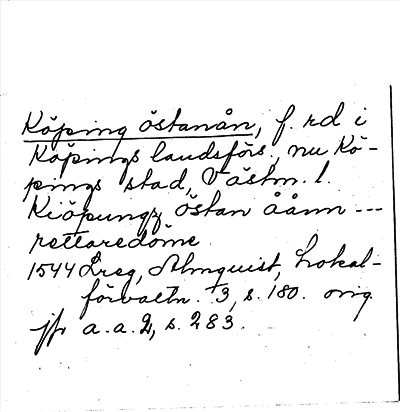 Köping östanån, f. rd i
Köpings landsförs., nu Kö-
pings stad, Västm. l.
Kiöpungz östan åånn ---
rettaredöme
1544 Lreg, Almquist, Lokal-
förvaltn. 3, s. 180. orig.
jfr a.a. 2, s. 283.